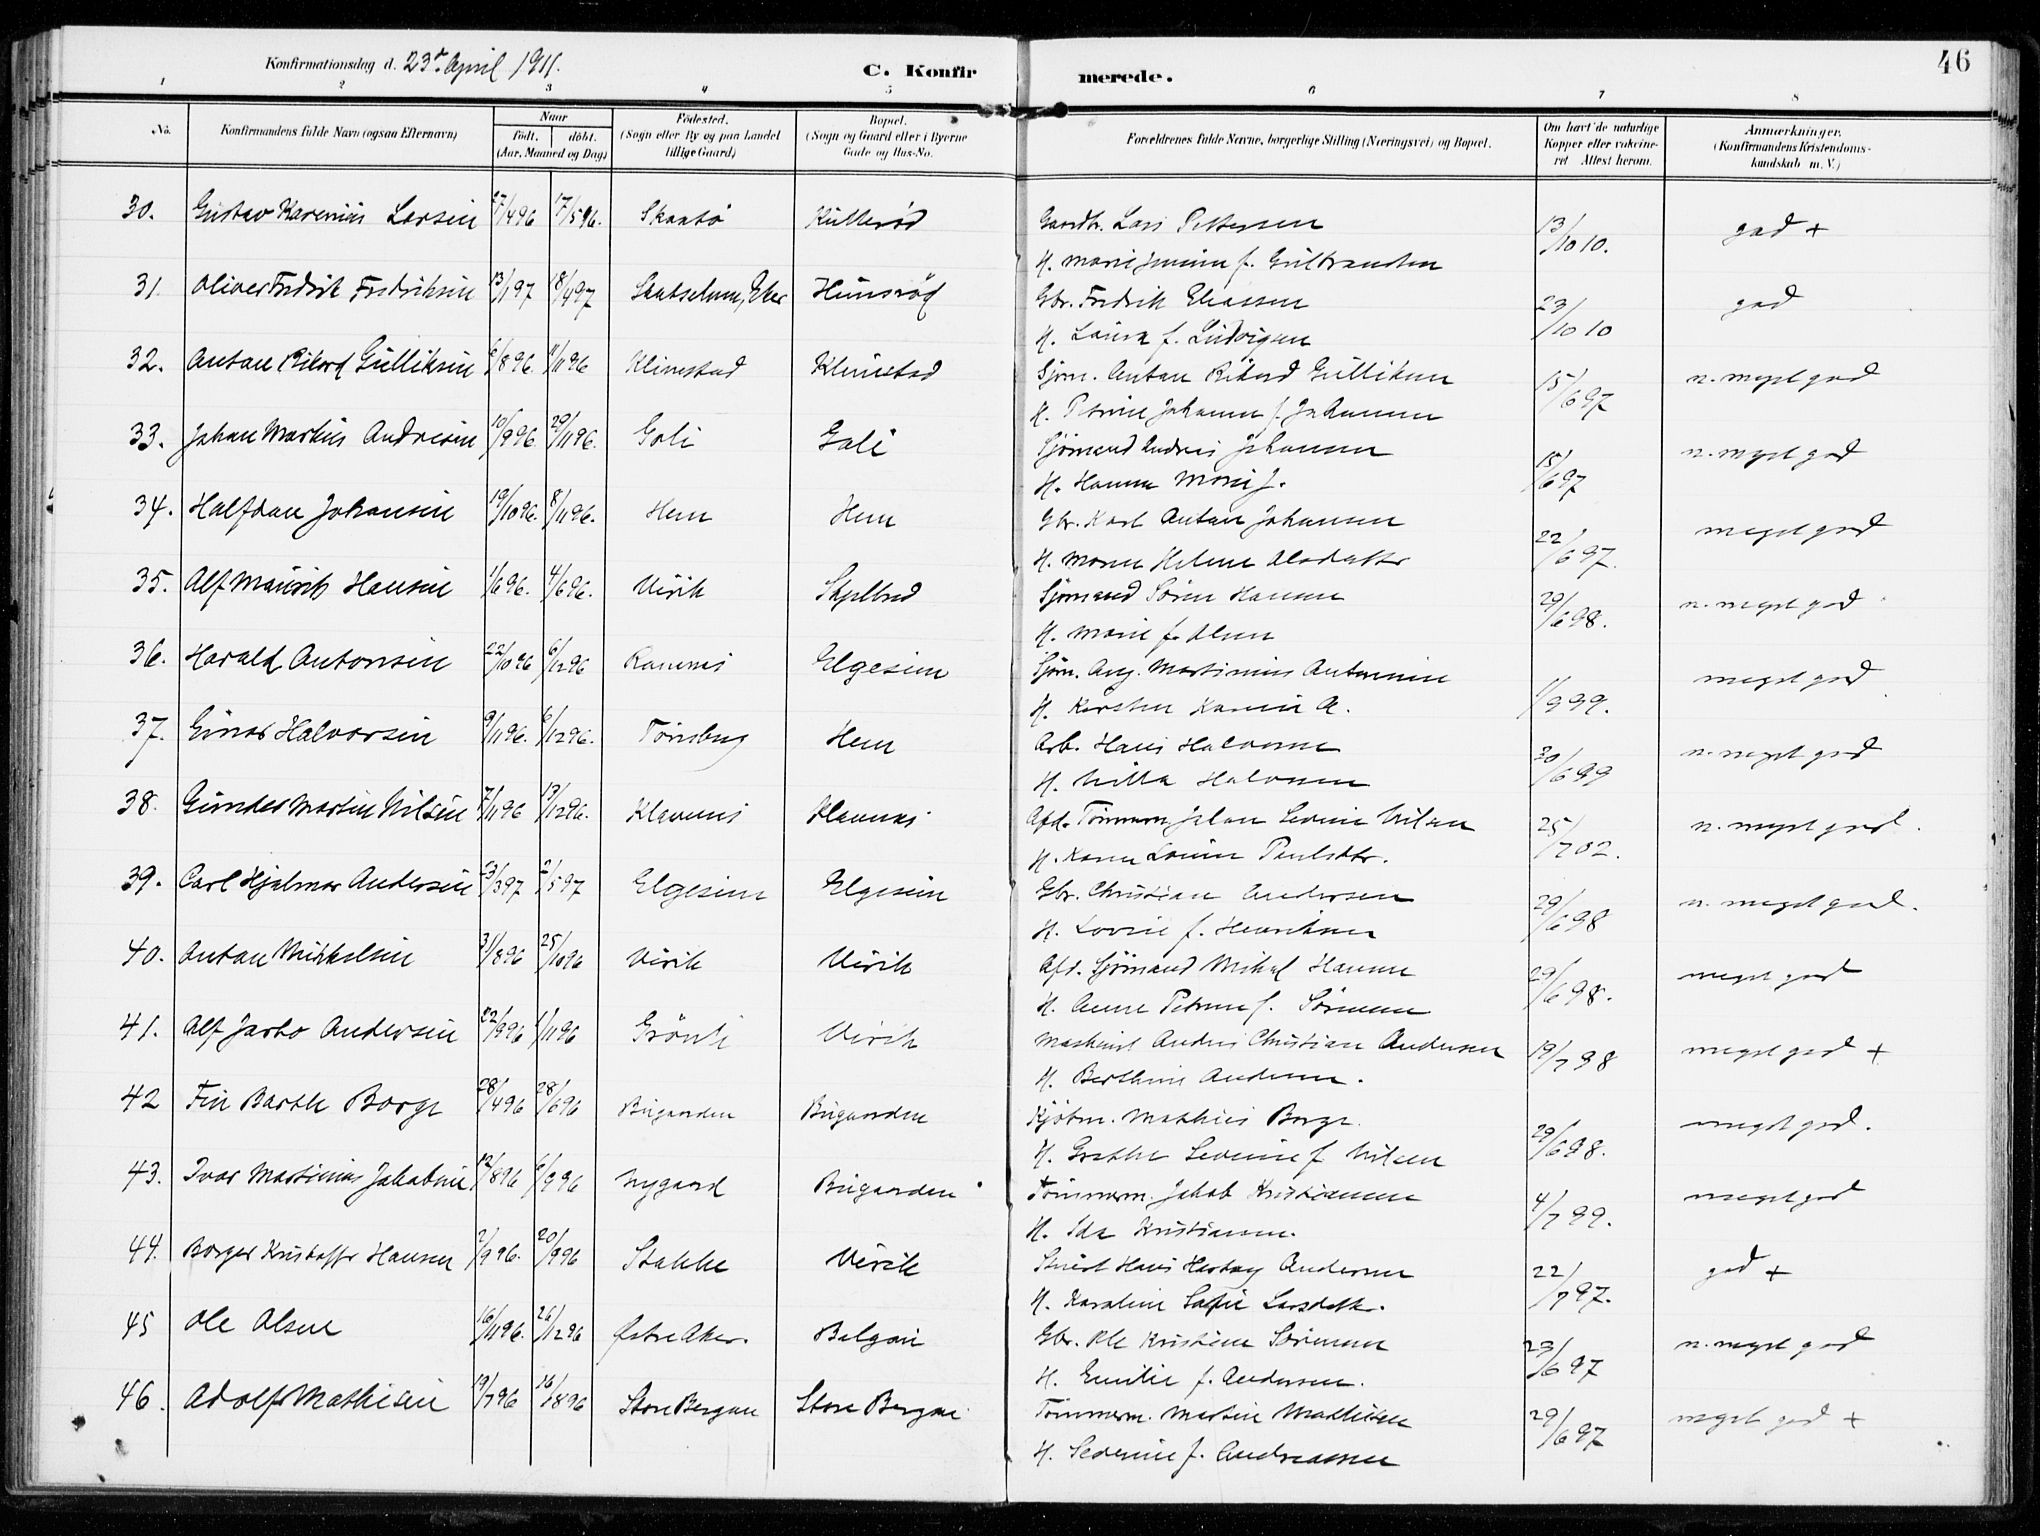 Konfirmationsdag d. 23de April 1911.
C. Konfirmerede.
46
1 2 3 4 5 6 7 8
No. Konfirmandens fulde Navn (ogsaa Efternavn) Naar født. døbt. (Aar, Maaned og Dag) Fødested. (Sogn eller By og paa Landet tillige Gaard) Bopæl. (Sogn og Gaard eller i Byerne Gade og Hus-No. Forældrenes fulde Navne, borgerlige Stilling (Næringsvei) og Bopæl. Om havt de naturlige Kopper eller vakcineret. Attest herom. Anmærkninger. (Konfirmandens Kristendomskundskab m. V.)
30. Gustav Karenius Larsen 27/4 96 17/5 96. Skaatø Kullerød Gaardbr. Lars Pettersen 13/10 10. god +
H. Marie f. Gulbrandsen
31. Oliver Fredrik Fredriksen 13/1 97 18/4 97 Eker Hunsrød Gbr. Fredrik Eliassen 23/10 10 god
H. Laura f. Ludvigsen
32. Anton Rikard Gulliksen 6/8 96. 1/11 96 Klinestad Klinestad Sjøm. Anton Rikard Gulliksen 15/6 97 n. meget god
H. Petrine Johanne f. Johannsen
33. Johan Martin Andresen 10/9 96. 29/11 96. Goli Goli Sjømand Andreas Johansen 15/6 97 n. meget god
H. Hanna Marie J.
34. Halfdan Johansen 19/10 96. 8/11 96. Hem Hem Gbr. Karl Anton Johansen 22/6 97. meget god
H. Maren Helene Olsdatter
35. Alf Mauritz Hansen 1/6 96. 4/6 96. Virik Skjelbred Sjømand Søren Hansen 29/6 98. n. meget god
H. Marie f. Olsen
36. Harald Antonsen 22/10 96 6/12 96 Ramnes Elgesem Sjøm. Aug. Martinius Antonsen 1/9 99. meget god
H. Kirsten Karine A.
37. Einar Halvorsen 9/11 96. 6/12 96. Tønsberg Hem Arb. Hans Halvorsen 30/6 99 n. meget god
H. Milla Halvorsen
38. Gunder Martin Nilsen 7/11 96 13/12 96. Klavenes Klavenes Afd. Tømmerm. Johan Severin Nilsen 25/7 02. n. meget god.
H. Karen Lovise Paulsdtr.
39. Carl Hjalmar Andersen 23/3 97 2/5 97 Elgesem Elgesem Gbr. Christian Andersen 29/6 98 n. meget god.
H. Lovise f. Henriksen
40. Anton Mikkelsen 31/8 96 25/10 96 Virik Virik Afd. Sjømand Mikal Hansen 29/6 98. meget god
H. Anne Petrine f. Sørensen
41. Alf Jarbo Andersen 22/9 96 1/11 96 Grönli Virik Maskinist Anders Christian Andersen 19/7 98 meget god +
H. Berthine Andersen.
42 Fin Barth Borge 28/4 96 28/6 96 Bugaarden Bugaarden Kjøbm. Mathias Borge 29/6 98. meget god.
H. Grethe Severine f. Nilsen
43. Ivar Martinius Jakobsen 12/8 96 6/9 96 Nygaard Bugaarden Tømmerm. Jakob Kristiansen 4/7 99. meget god
H. Ida Kristiansen.
44. Borger Kristoffer Hansen 2/9 96. 20/9 96 Stokke Virik Hans Andersen 22/7 97. god +
H. Karoline Sofie Larsdatter.
45 Ole Olsen 16/11 96. 26/12 96 Østre Aker. Bolgan Gbr. Ole Kristian Sørensen 23/6 97 n. meget god
H. Emilie f. Andersen.
46. Adolf Mathisen 19/7 96 16/8 96 Store Bergan Store Bergan Tømmerm. Martin Mathisen 29/6 97 meget god +
H. Severine f. Andreassen